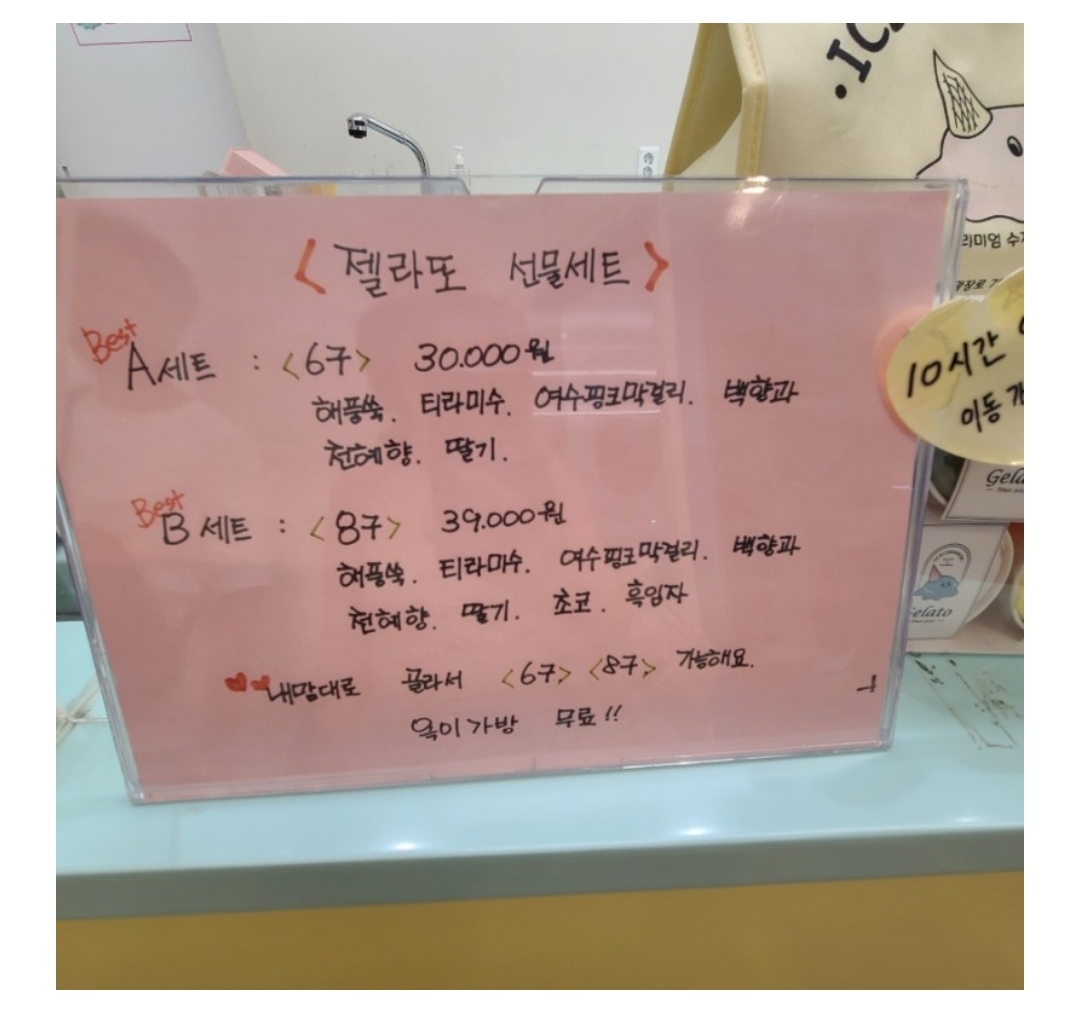 < 젤라또 선물세트 >
Best
A세트 : <6구> 30.000원
해풍쑥. 티라미수. 여수핑크막걸리. 백향과
천혜향. 딸기.
Best
B세트 : <8구> 39.000원
해풍쑥. 티라미수. 여수핑크막걸리. 백향과
천혜향. 딸기. 초코. 흑임자
내맘대로 골라서 <6구> <8구> 가능해요.
옥이가방 무료!!
10시간
이동
리미엄 수
Gelato